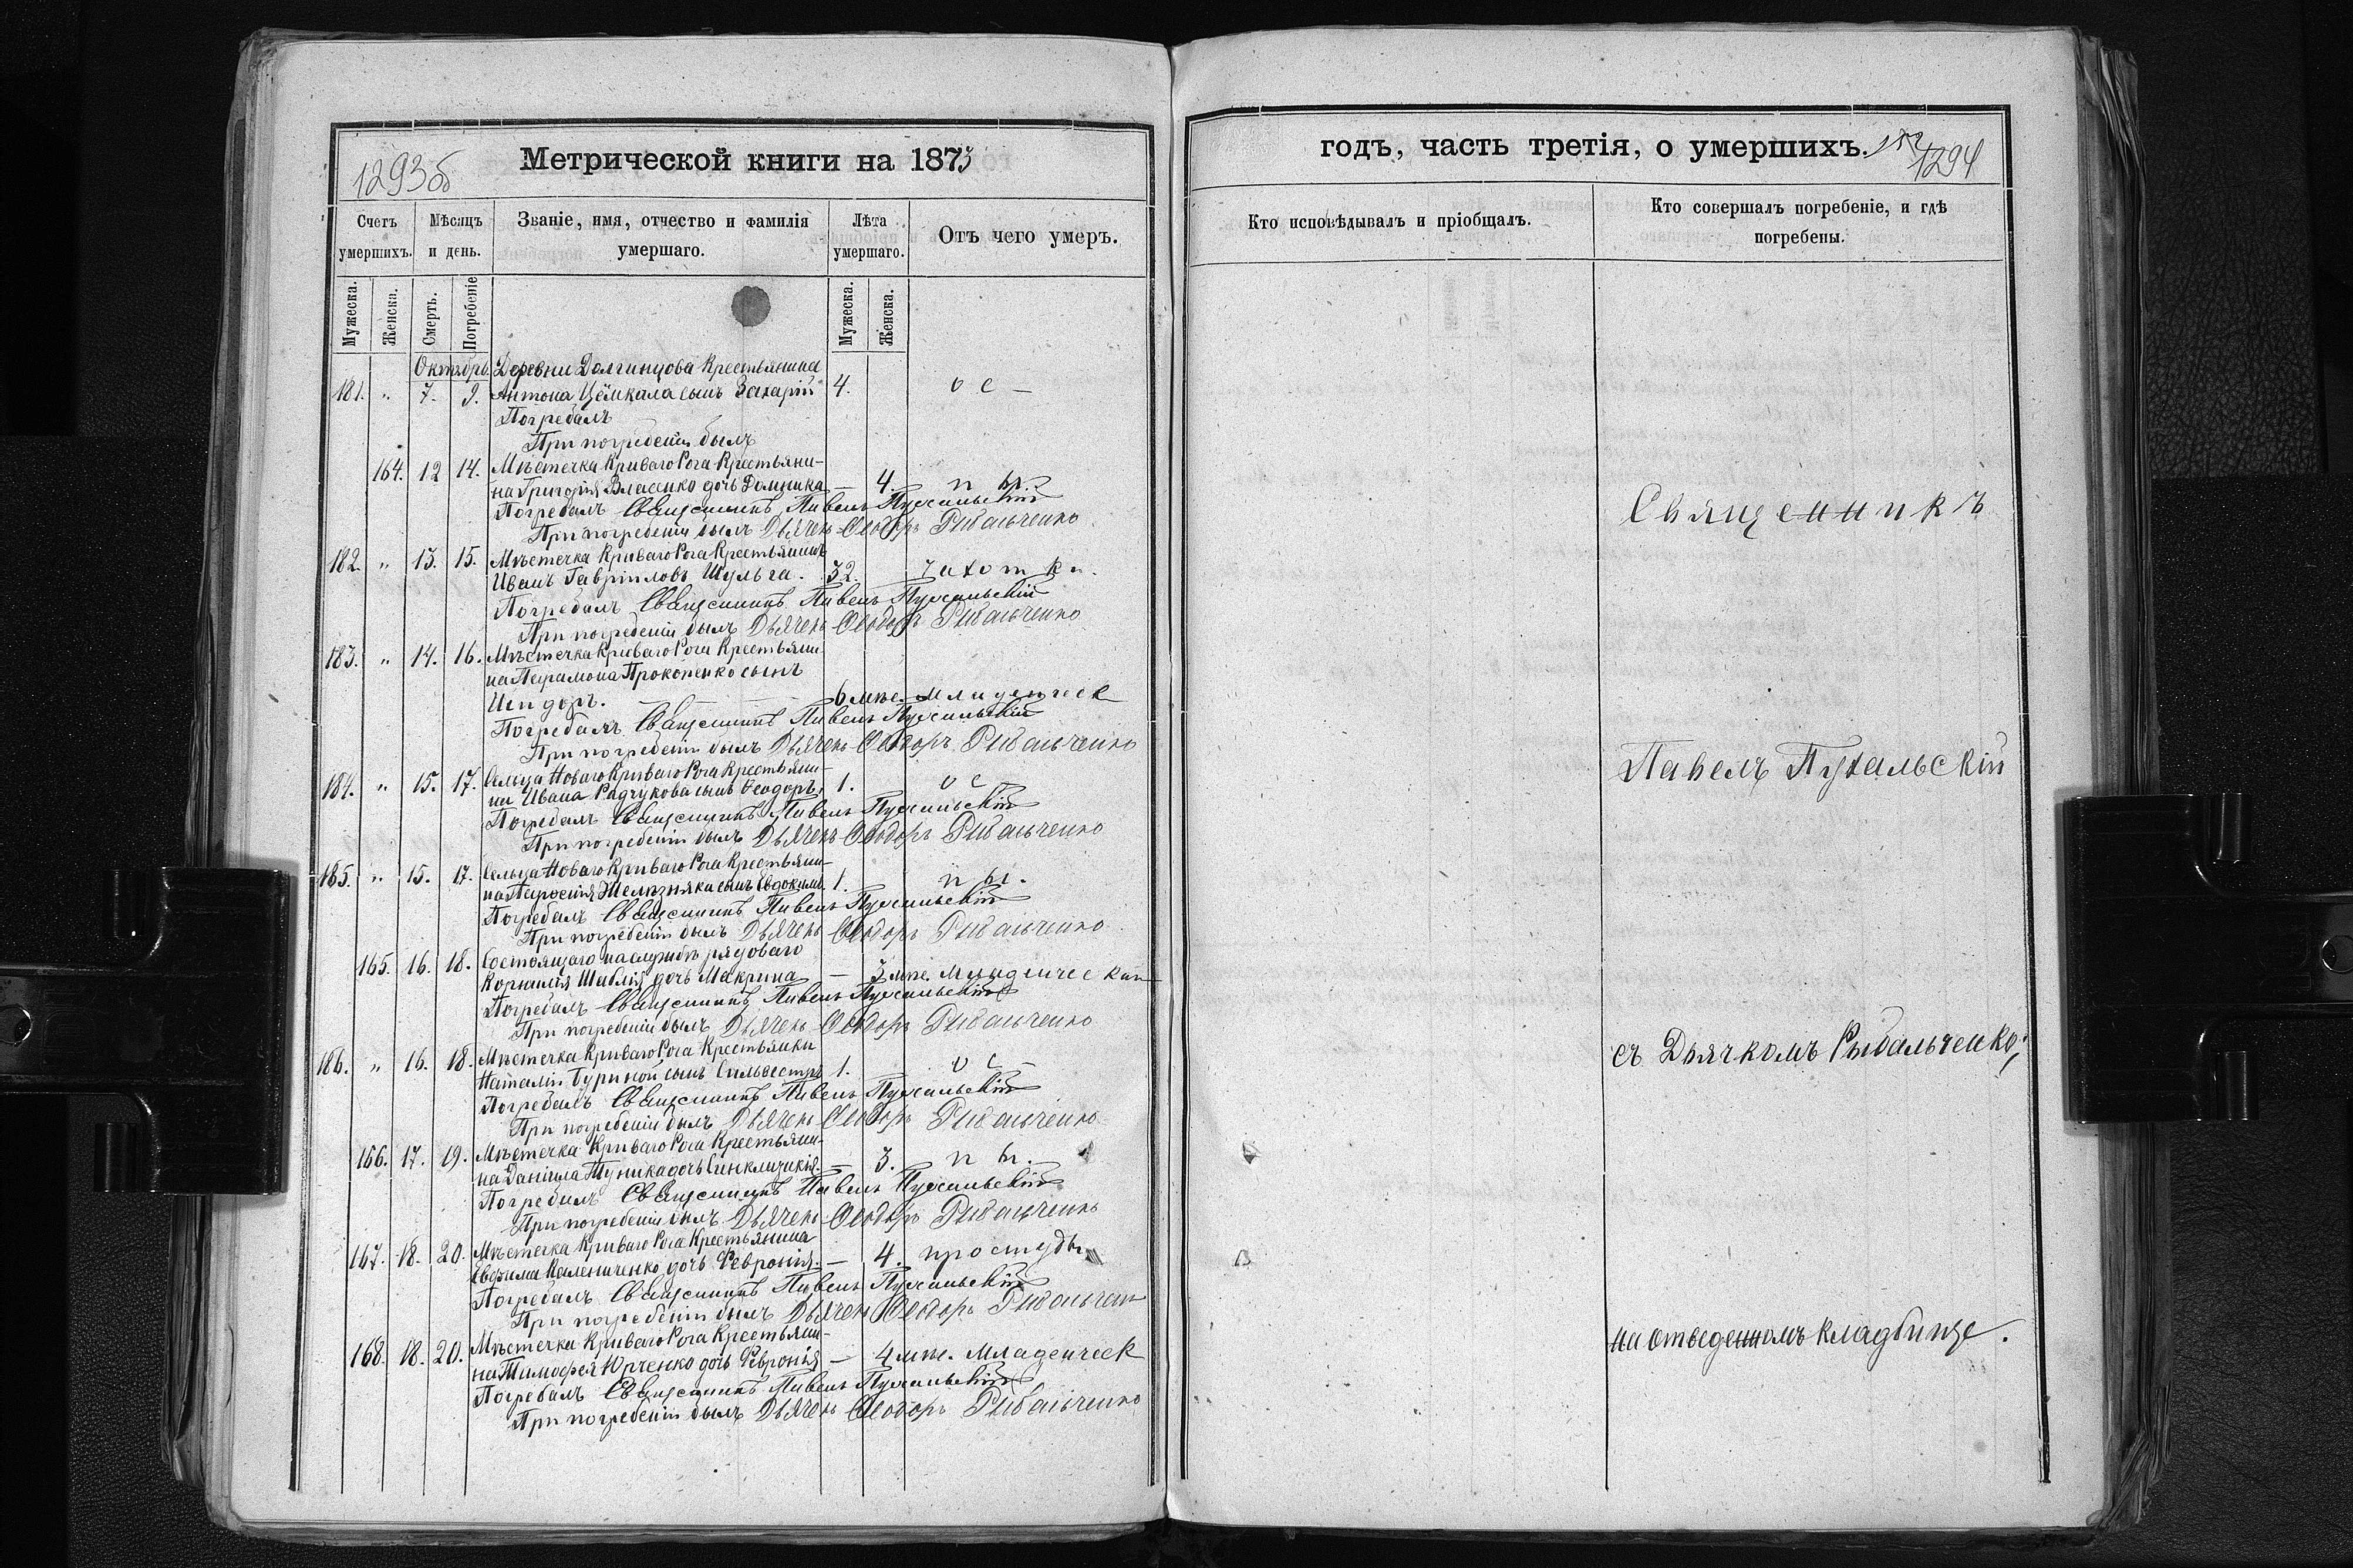 1293об
Метрической книги на 1873
Счетъ умершихъ.
Мѣсяцъ и день.
Званіе, имя, отчество и фамилія умершаго.
Лѣта умершаго.
Отъ чего умеръ.
Мужеска. Женска. Смерть. Погребеніе Мужеска. Женска.
Октябрь. Деревни Долгинцова Крестьянина
181. " 7. 9. Антона сынъ Захарій 4.
Погребалъ
При погребеніи былъ
164. 12 14. Мѣстечка Криваго Рога Крестьяни-
на Григорія Власенко дочь Домника — 4.
Погребалъ Священникъ Павелъ Пухальскій
При погребеніи былъ Дьячекъ Ѳеодоръ Рыбальченко
182. " 13. 15. Мѣстечка Криваго Рога Крестьянинъ
Иванъ Гавріиловъ Шульга. 32. чахотки.
Погребалъ Священникъ Павелъ Пухальскій
При погребеніи былъ Дьячекъ Ѳеодоръ Рыбальченко
183. " 14. 16. Мѣстечка Криваго Рога Крестьяни-
на Парамона Прокопенко сынъ
6 мѣс. младенческ
Погребалъ Священникъ Павелъ Пухальскій
При погребеніи былъ Дьячекъ Ѳеодоръ Рыбальченко
184. " 15. 17. Сельца Новаго Криваго Рога Крестьяни-
на Ивана Радчукова сынъ Ѳеодоръ, 1.
Погребалъ Священникъ Павелъ Пухальскій
При погребеніи былъ Дьячекъ Ѳеодоръ Рыбальченко
185. " 15. 17. Сельца Новаго Криваго Рога Крестьяни-
на Желѣзняка сынъ Евдокимъ. 1.
Погребалъ Священникъ Павелъ Пухальскій
При погребеніи былъ Дьячекъ Ѳеодоръ Рыбальченко
165. 16. 18. Состоящаго на службѣ рядоваго
Корнилія Шаблія дочь Макрина — 3 мѣс. младенческ
Погребалъ Священникъ Павелъ Пухальскій
При погребеніи былъ Дьячекъ Ѳеодоръ Рыбальченко
186. " 16. 18. Мѣстечка Криваго Рога Крестьянки
Наталіи сынъ Сильвестръ 1.
Погребалъ Священникъ Павелъ Пухальскій
При погребеніи былъ Дьячекъ Ѳеодоръ Рыбальченко
166. 17. 19. Мѣстечка Криваго Рога Крестьяни-
на Даніила дочь Синклитикія. — 3.
Погребалъ Священникъ Павелъ Пухальскій
При погребеніи былъ Дьячекъ Ѳеодоръ Рыбальченко
167. 18. 20. Мѣстечка Криваго Рога Крестьянина
Евфима Калениченко дочь Февронія. — 4. простуды
Погребалъ Священникъ Павелъ Пухальскій
При погребеніи былъ Дьячекъ Ѳеодоръ Рыбальченко
168. 18. 20. Мѣстечка Криваго Рога Крестьяни-
на Тимофея Юрченко дочь Февронія — 4 мѣс. младенческ
Погребалъ Священникъ Павелъ Пухальскій
При погребеніи былъ Дьячекъ Ѳеодоръ Рыбальченко
годъ, часть третія, о умершихъ.
1294
Кто исповѣдывалъ и пріобщалъ.
Кто совершалъ погребеніе, и гдѣ погребены.
Священникъ
Павелъ Пухальскій
съ Дьячкомъ Рыбальченко,
на отведенномъ кладбищѣ.